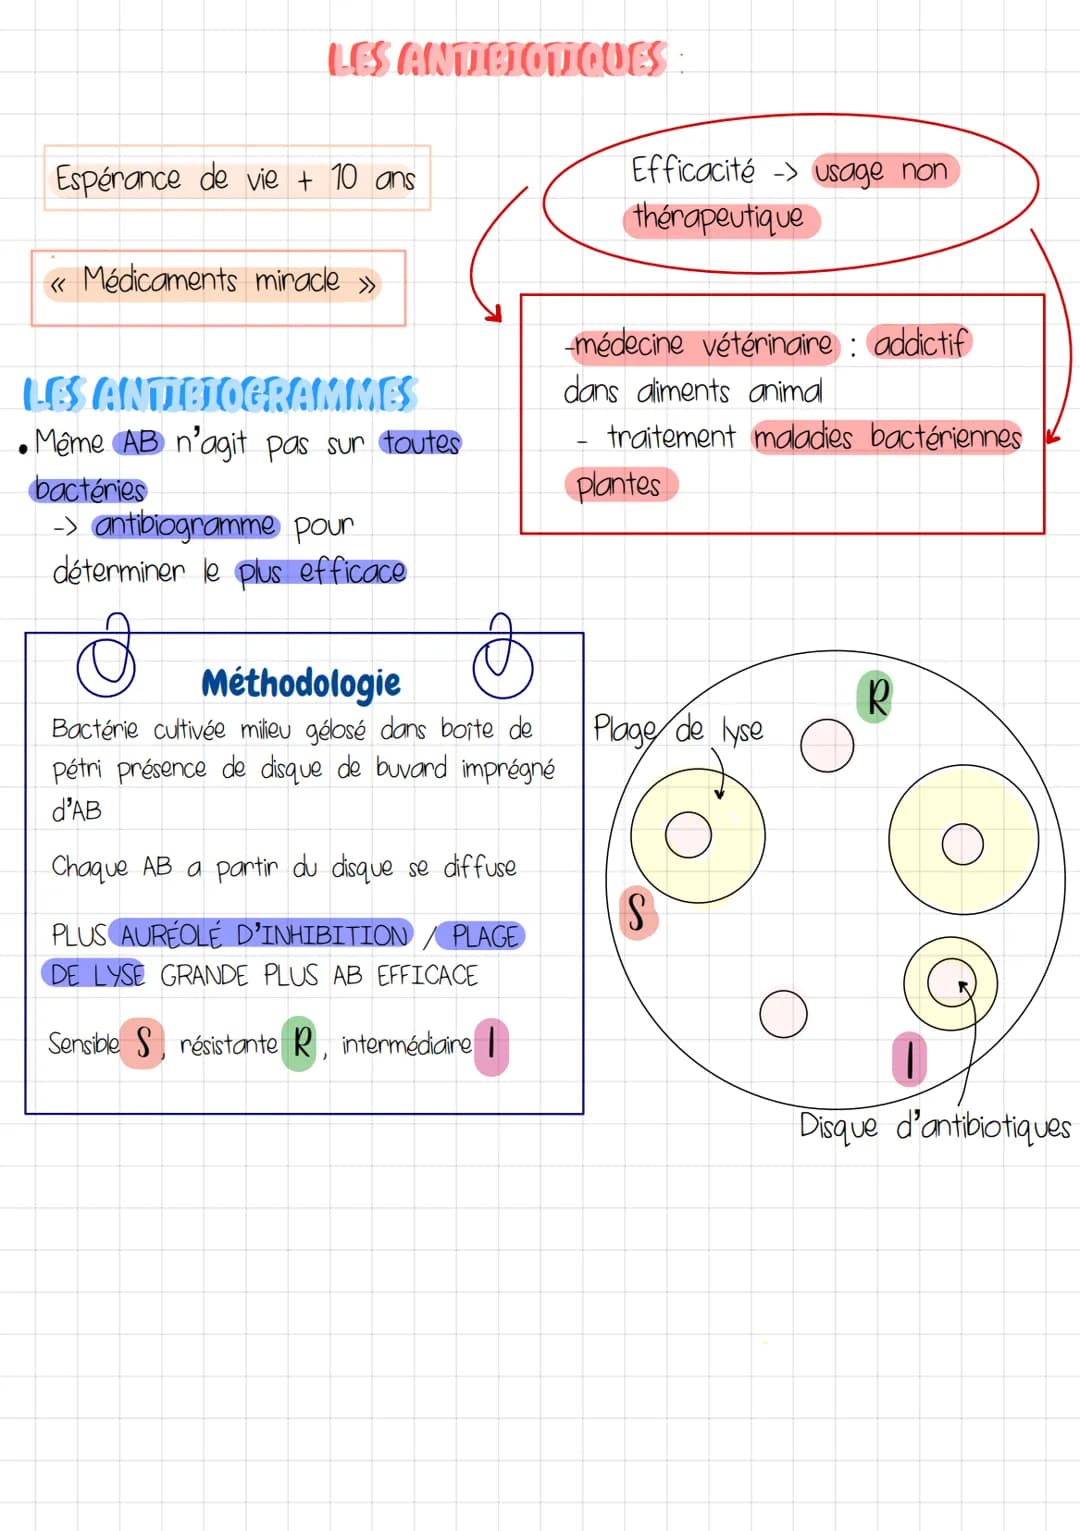 LES ANTIBIOTIQUES :
Espérance de vie + 10 ans
« Médicaments miracle »
Efficacité -> usage non
thérapeutique
-médecine vétérinaire : addictif
dans aliments animal
- traitement maladies bactériennes
plantes
LES ANTIBIOGRAMMES
• Même AB n'agit pas sur toutes
bactéries
-> antibiogramme pour
déterminer le plus efficace
Méthodologie
Bactérie cultivée milieu gélosé dans boîte de
pétri présence de disque de buvard imprégné
d'AB
Chaque AB a partir du disque se diffuse
PLUS AURÉOLÉ D'INHIBITION / PLAGE
DE LYSE GRANDE PLUS AB EFFICACE
Sensible S, résistante R, intermédiaire I
Plage de lyse
R
S
I
Disque d'antibiotiques